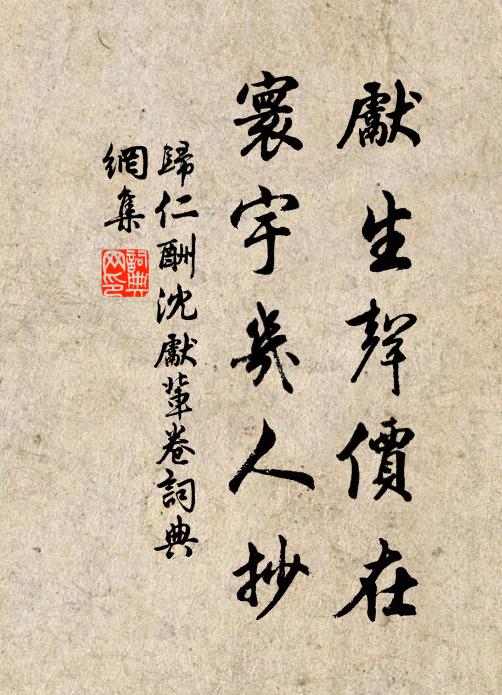 獻生聲價在
寰宇幾人抄
歸仁酬沈獻輩卷詞典
網集
詞典
网印